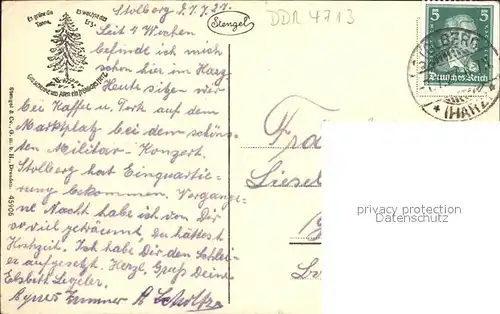 Es grüne die Tanne,
Es wachse das Erz,
Gott schenke uns Allen ein fröhliches Herz.
Stolberg, d. 7.7.27.
Stengel
DDR 4713
Seit 4 Wochen
befinde ich mich
schon hier im Harz
Heute sitzen wir
bei Kaffee u. Tork auf dem
Marktplatz bei dem schöns-
ten Militär-Konzert.
Stolberg hat Einquartie-
rung bekommen. Vergange-
ne Nacht habe ich von Dir
so viel geträumt, Du hättest
Hochzeit. Ich habe Dir den Schlei-
er aufgesetzt. Herzl. Gruß Deine
Elsbeth Legeler.
Agnes
Stengel & Co., G. m. b. H., Dresden. 45906
5 5
Deutsches Reich
STOLBERG
* (HARZ) *
privacy protection
Datenschutz